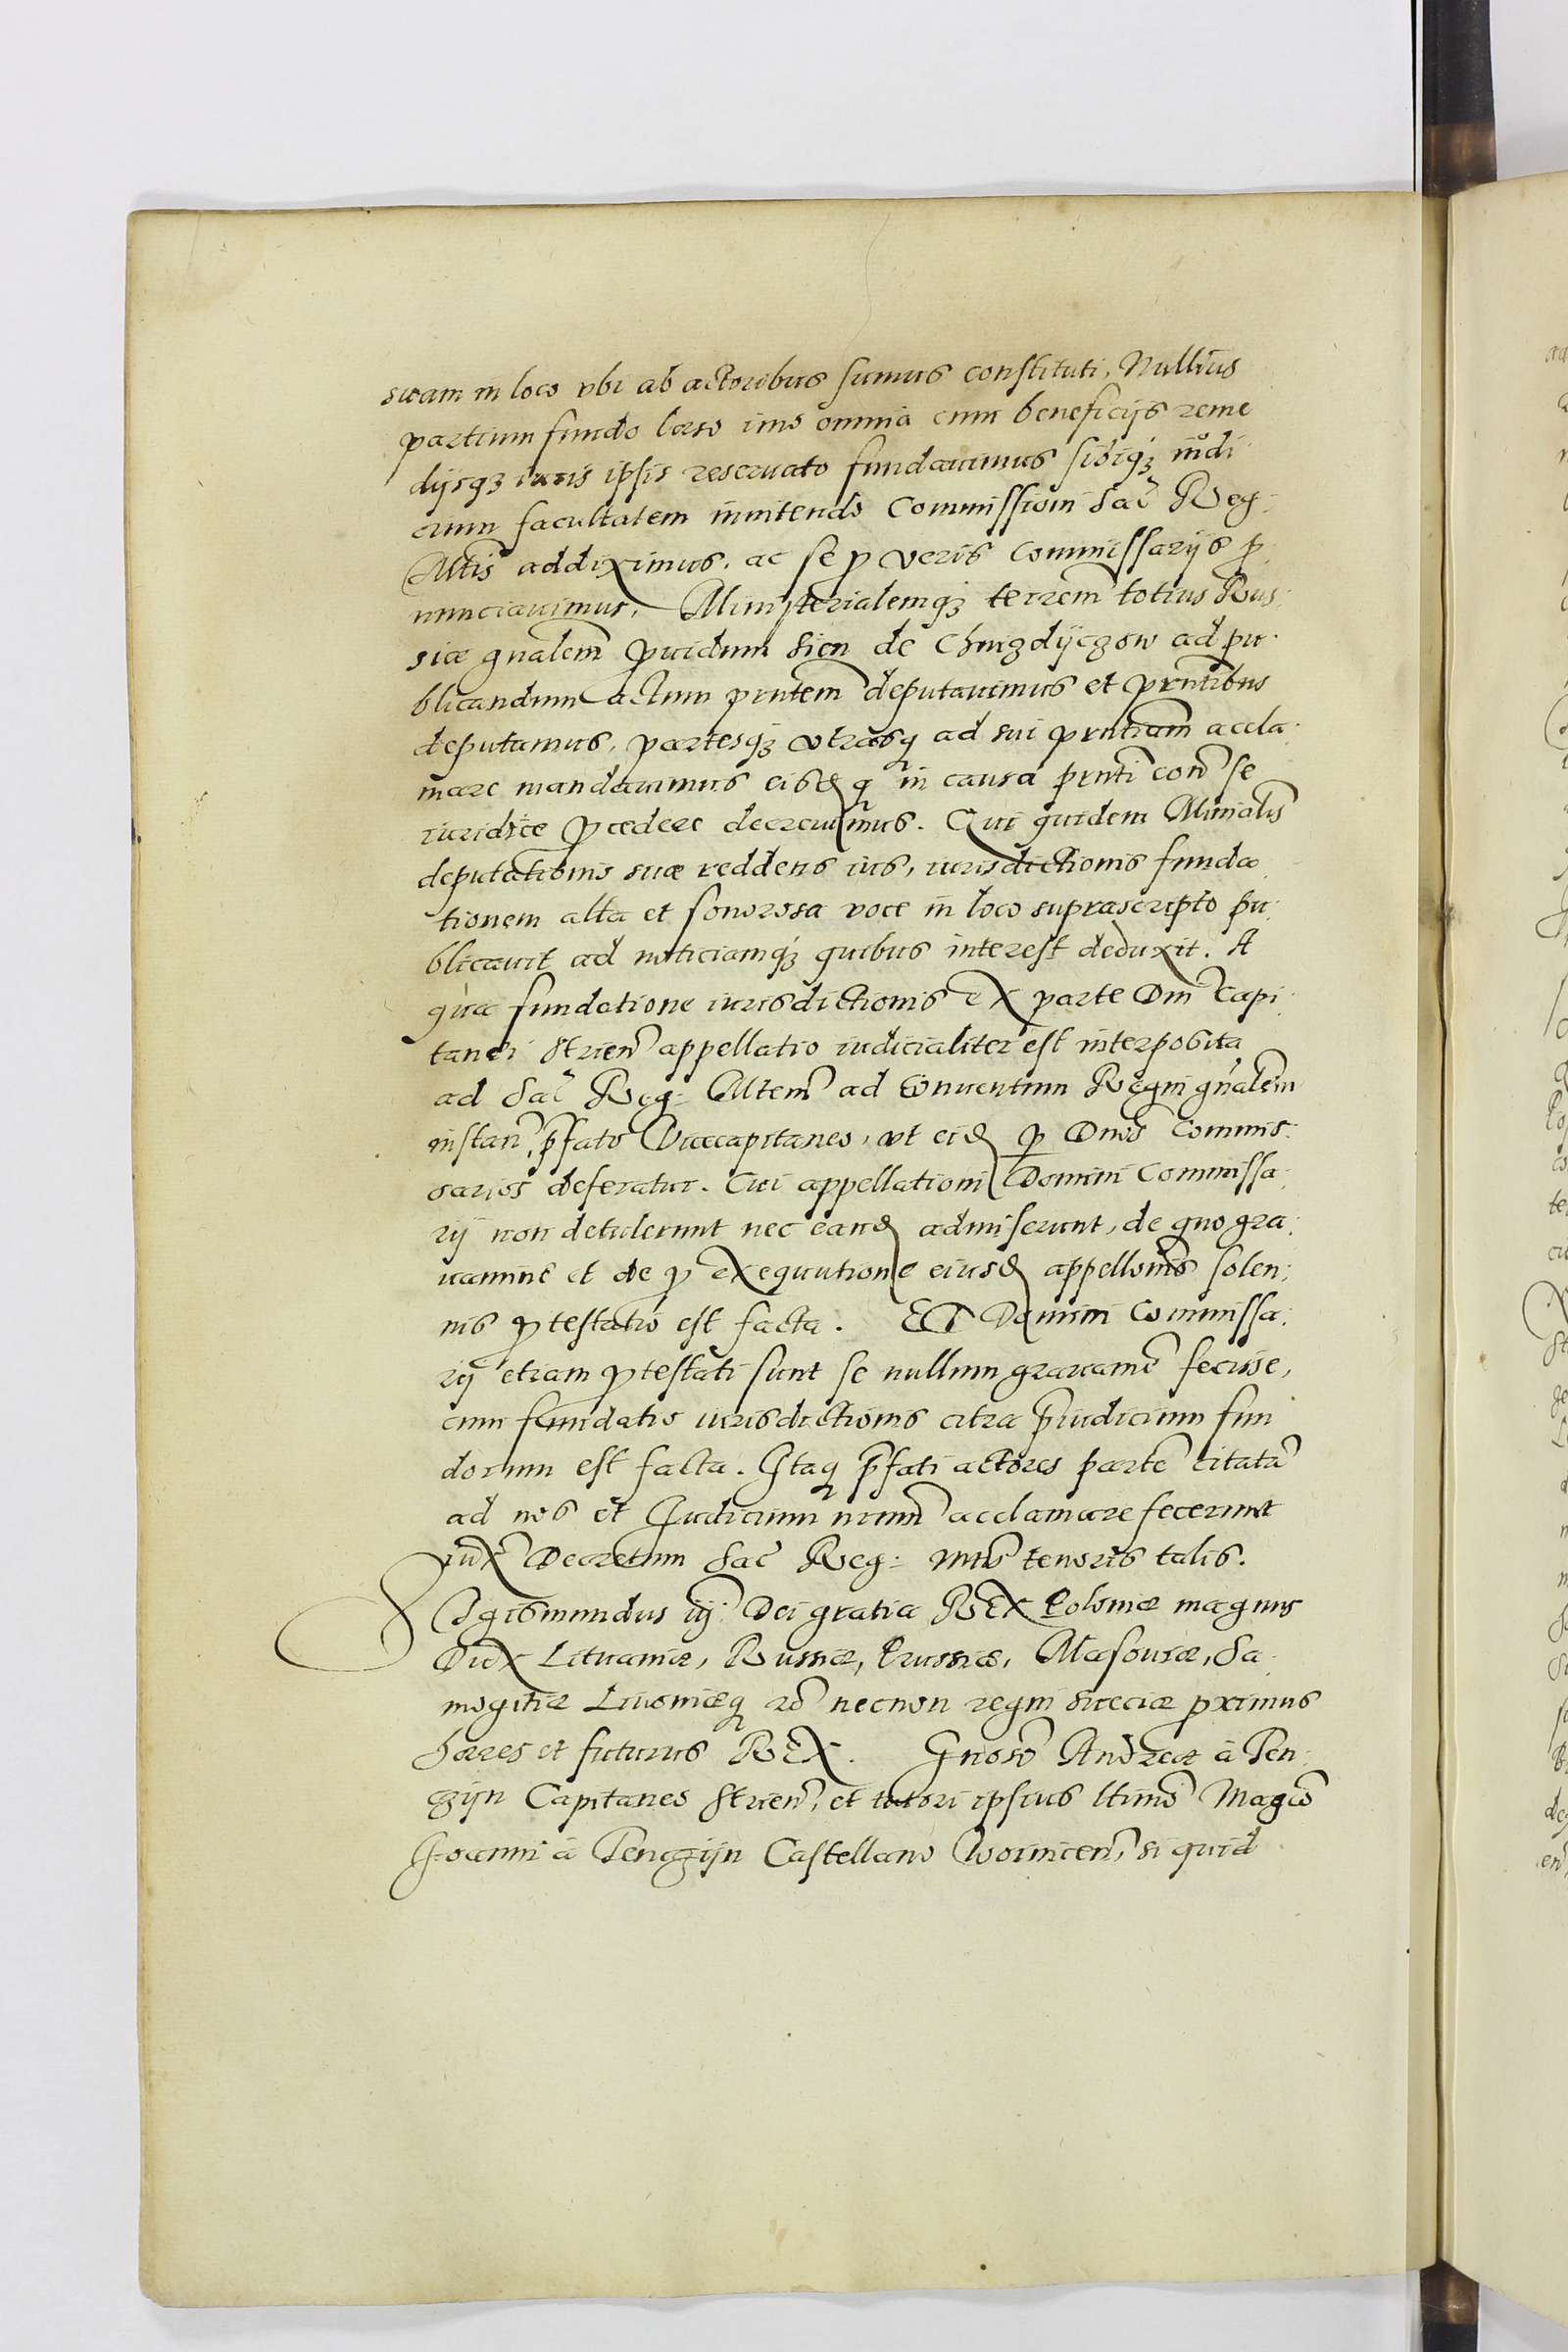 suam in loco vbi ab actoribus sumus constituti, Nullius
partium fundo laeso imo omnia cum beneficijs reme
dijsq₃ iuris ipsis reseruato fundauimus sibiq₃ iudi
cium facultatem innitendo Commissioni Sac̃ Reg:
Mtis̃ addiximus, ac se ꝓ veris Commissarijs ꝓ
nunciauimus, Ministerialemq₃ terrem̃ totius Rus:
siæ gnalem̃ Prouidum Sien de Chuzdÿczow ad pu:
blicandum actum pnt̃em deputauimus et prnt̃ibus
deputamus, partesq₃ vtrasq ad sui prnt̃iam accla:
mare mandauimus eisd̃ q in causa pnti corã se
iuridice ꝓcedere decreuimus. Qui quidem Minial̃is
deputationis suæ reddens ius, iurisdictionis funda
tionem alta et sonorosa voce in loco suprascripto pu:
blicauit ad noticiamq₃ quibus interest deduxit. A
qua fundatione iurisdictionis ex parte Dni Capi:
tanei Strien̄ appellatio iudicialiter est interposita
ad Sac̃ Reg: Mtem̃ ad Conuentum Regni gnãlem
instan̄, p̄fato Vicecapitaneo, vt eid̃ ꝑ Dnos̃ Commis:
sarios deferatur. Cui appellationi Domini Commissa:
rij non detulerunt nec eand̃ admiserunt, de quo gra:
uamine et de ꝓ exequutione eiusd̃ appellonis̃ solen:
nis ꝓtestatio est facta. ET Domini Commissa:
rij etiam ꝓtestati sunt se nullum grauamẽ fecisse,
cum fundatio iurisdictionis citra p̄iudicium fun
dorum est facta. Itaq p̄fati actores partẽ citatã
ad nos et Iudicium nrum̃ acclamare fecerunt
iuxã Decretum Sac̃ Reg: Mtis̃ tenoris talis.
Sigismundus iij: Dei gratia REX Poloniæ magnus
Dux Lituaniæ, Russiæ, Prussiæ, Masouiæ, Sa:
mogitiæ Liuoniæq rc̃ necnon regni Sueciæ pximus
hæres et futurus REX. Gnosõ Andreæ à Ten:
czijn Capitaneo Strien̄, et tutori ipsius Iltmõ Magcõ
Joanni à Tenczijn Castellano Woinicen̄, si quid